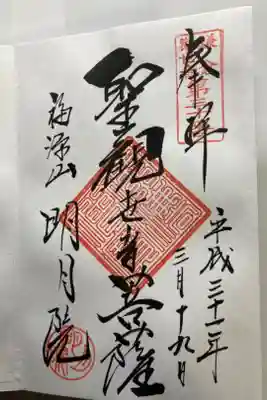 奉拝
平成三十一年
三月十九日
聖観世音菩薩
福源山 明月院